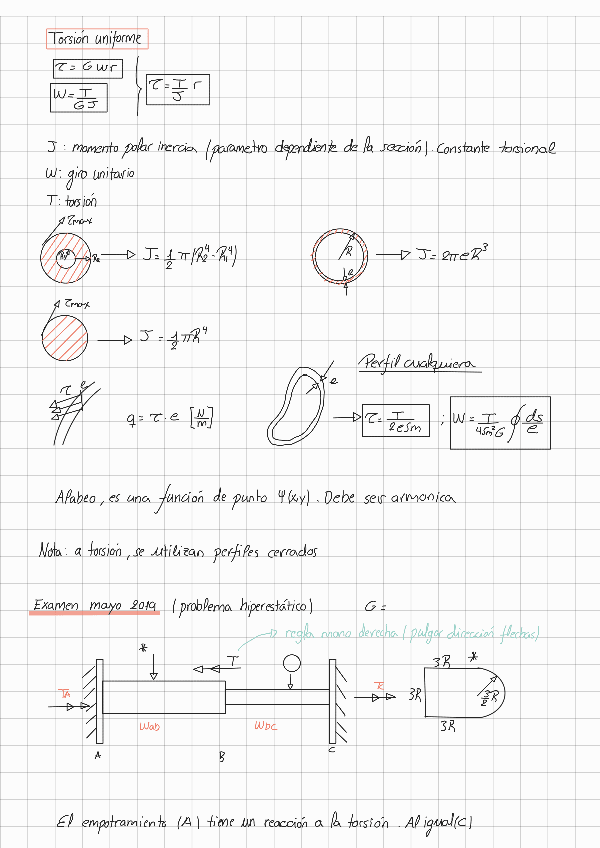 Torsión uniforme
τ = G w r
W = T / GJ
τ = T/J r
J : momento polar inercia (parametro dependiente de la sección). Constante torsional
W: giro unitario
T: torsión
τmax
R1 R2
J = 1/2 π (R2^4 - R1^4)
R e
J = 2πeR^3
τmax
J = 1/2 πR^4
Perfil cualquiera
τ e
q = τ · e [N/m]
e
τ = T / 2eSm ; W = T / 4Sm²G ∮ ds/e
Alabeo, es una función de punto Ψ(x,y). Debe ser armonica
Nota: a torsión, se utilizan perfiles cerrados
Examen mayo 2019 (problema hiperestático) G =
regla mano derecha (pulgar dirección flechas)
* T 3R *
TA 3R 3/2 R
3R
A B C
El empotramiento (A) tiene un reacción a la torsión. Al igual (C)